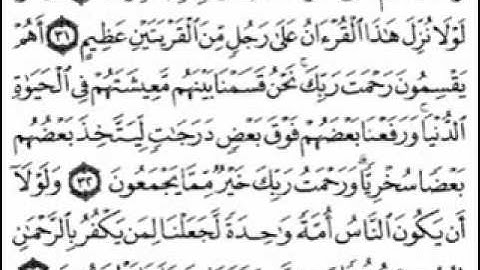 لَوْلَا نُزِّلَ هَٰذَا ٱلْقُرْءَانُ عَلَىٰ رَجُلٍ مِّنَ ٱلْقَرْيَتَيْنِ عَظِيمٍ ٣١ أَهُمْ
يَقْسِمُونَ رَحْمَتَ رَبِّكَ ۚ نَحْنُ قَسَمْنَا بَيْنَهُم مَّعِيشَتَهُمْ فِى ٱلْحَيَوٰةِ
ٱلدُّنْيَا ۚ وَرَفَعْنَا بَعْضَهُمْ فَوْقَ بَعْضٍ دَرَجَٰتٍ لِّيَتَّخِذَ بَعْضُهُم
بَعْضًا سُخْرِيًّا ۗ وَرَحْمَتُ رَبِّكَ خَيْرٌ مِّمَّا يَجْمَعُونَ ٣٢ وَلَوْلَآ
أَن يَكُونَ ٱلنَّاسُ أُمَّةً وَٰحِدَةً لَّجَعَلْنَا لِمَن يَكْفُرُ بِٱلرَّحْمَٰنِ